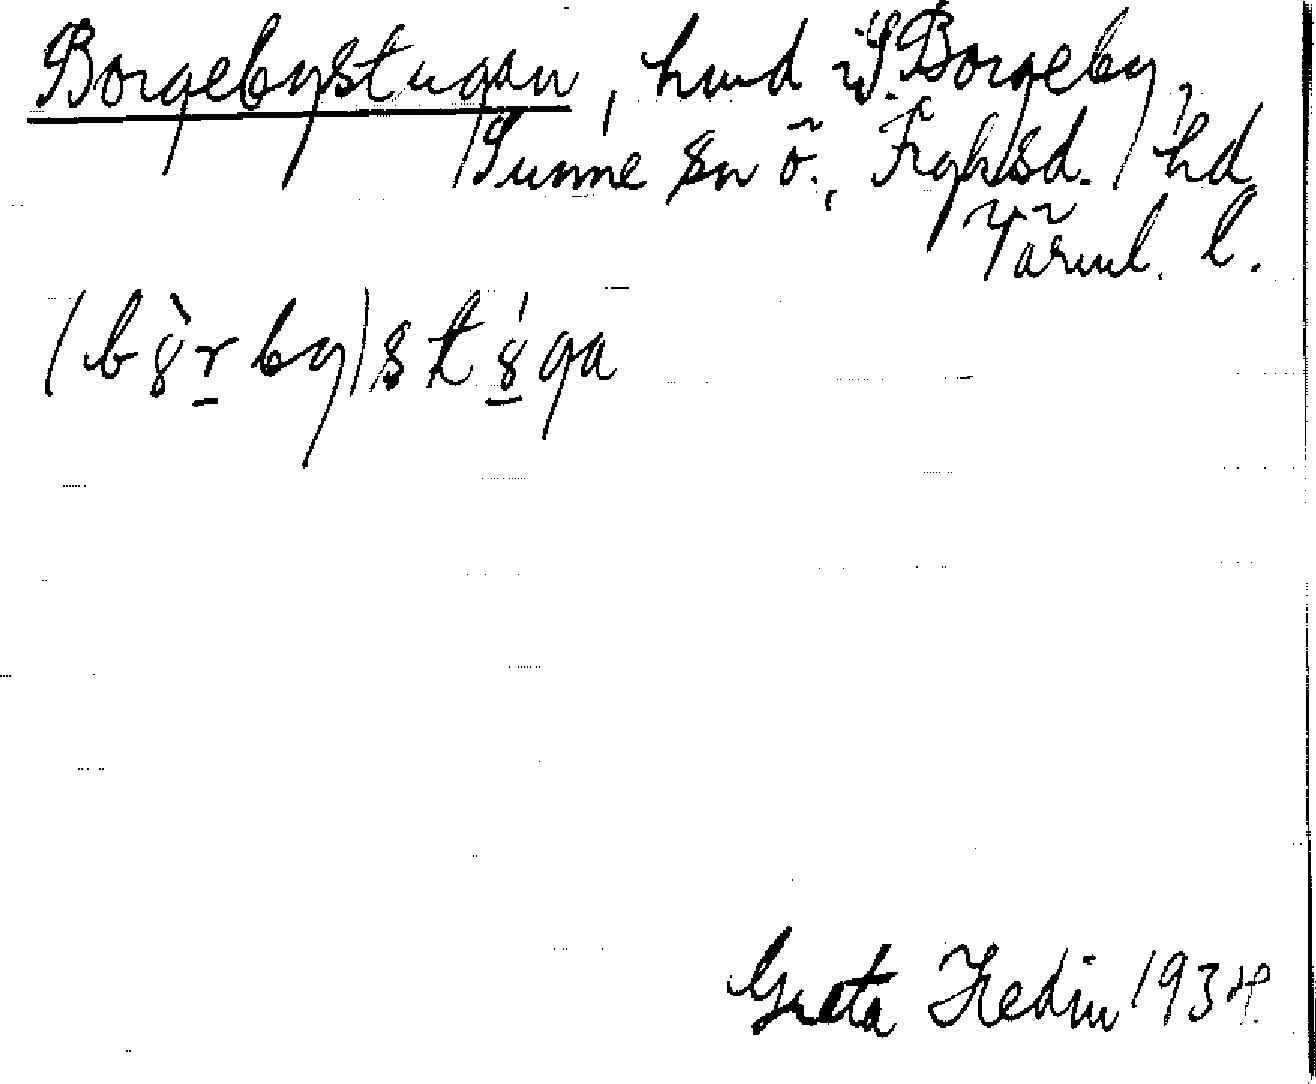 Borgebystugan, hmd i S. Borgeby,
Sunne sn ö., Frykdsd. hd
Värml. l.
(bȣ̀r̲by)stȣ̲́ga
Greta Hedin 1934.